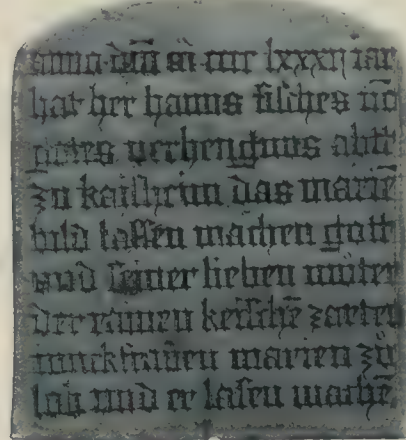 anno dn̄i m cccc lxxxij iar
hat her hanns fisches vō
gotes verhengnus abtt
zu kaisheim das mariē
bild lassen machen gott
vnd seiner lieben muter
der rainen keüschē zarten
iunckfrauen marien zů
lob vnd er lasen machē